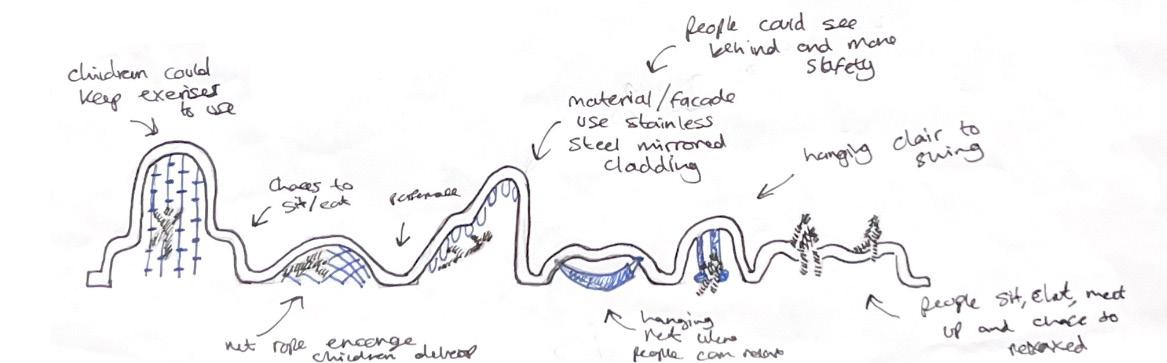 children could
keep exerises
to use
chaces to
sit/eat
material/facade
use stainless
steel mirrored
cladding
people could see
behind and more
safety
hanging clair to
swing
net rope encorage
children delveop
hanging
net
people can relax
people sit, eat, meet
up and chace to
relaxed